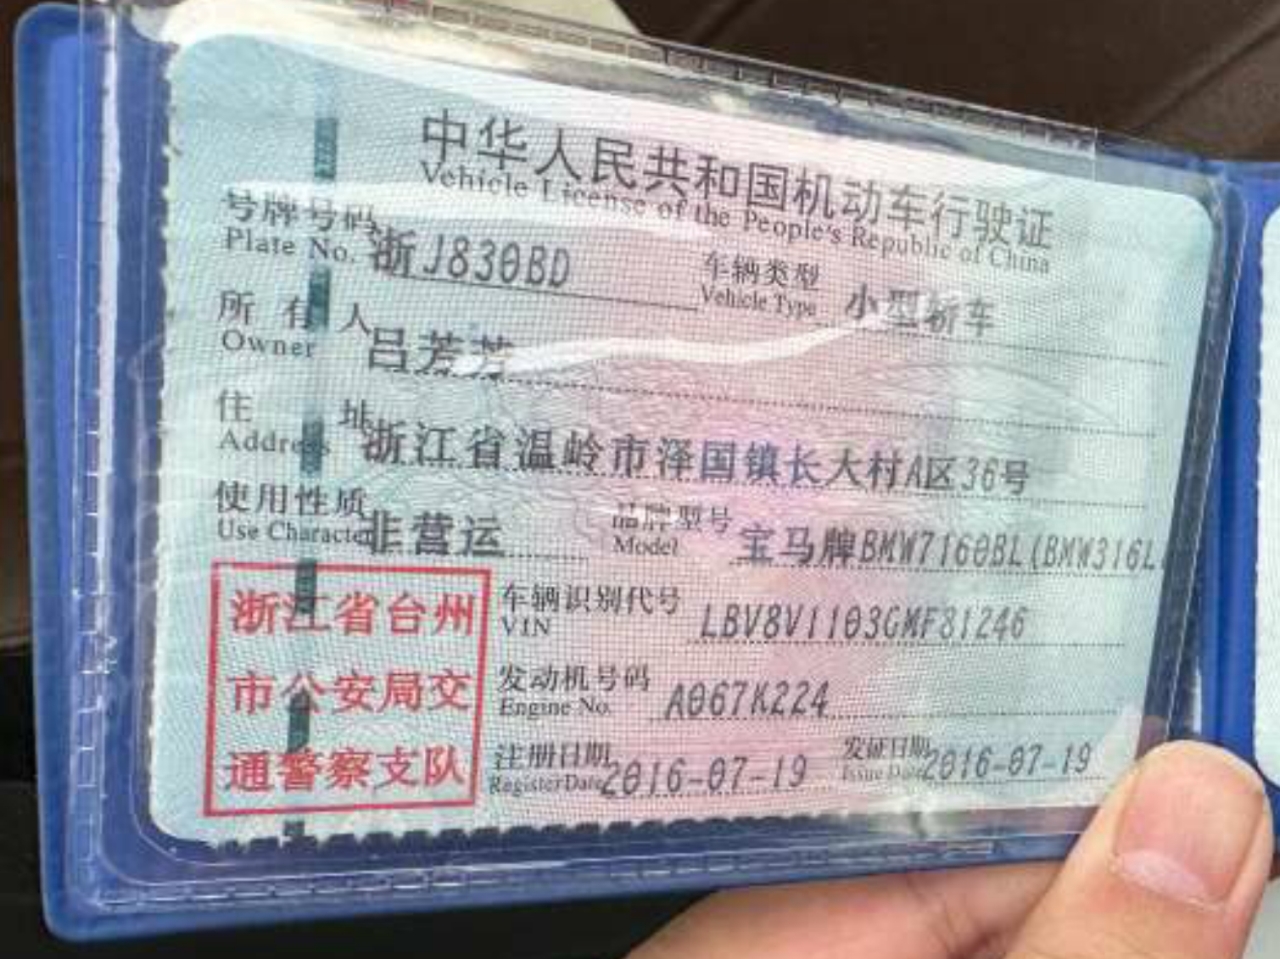 中华人民共和国机动车行驶证
Vehicle License of the People's Republic of China
号牌号码 浙J830BD 车辆类型 小型轿车
Plate No. Vehicle Type
所有人 吕芳芳
Owner
住址 浙江省温岭市泽国镇长大村A区36号
Address
使用性质 非营运 品牌型号 宝马牌BMW7160BL(BMW316L
Use Character Model
浙江省台州
市公安局交
通警察支队
车辆识别代号 LBV8V1103GMF81246
VIN
发动机号码 A067K224
Engine No.
注册日期 2016-07-19 发证日期 2016-07-19
Register Date Issue Date